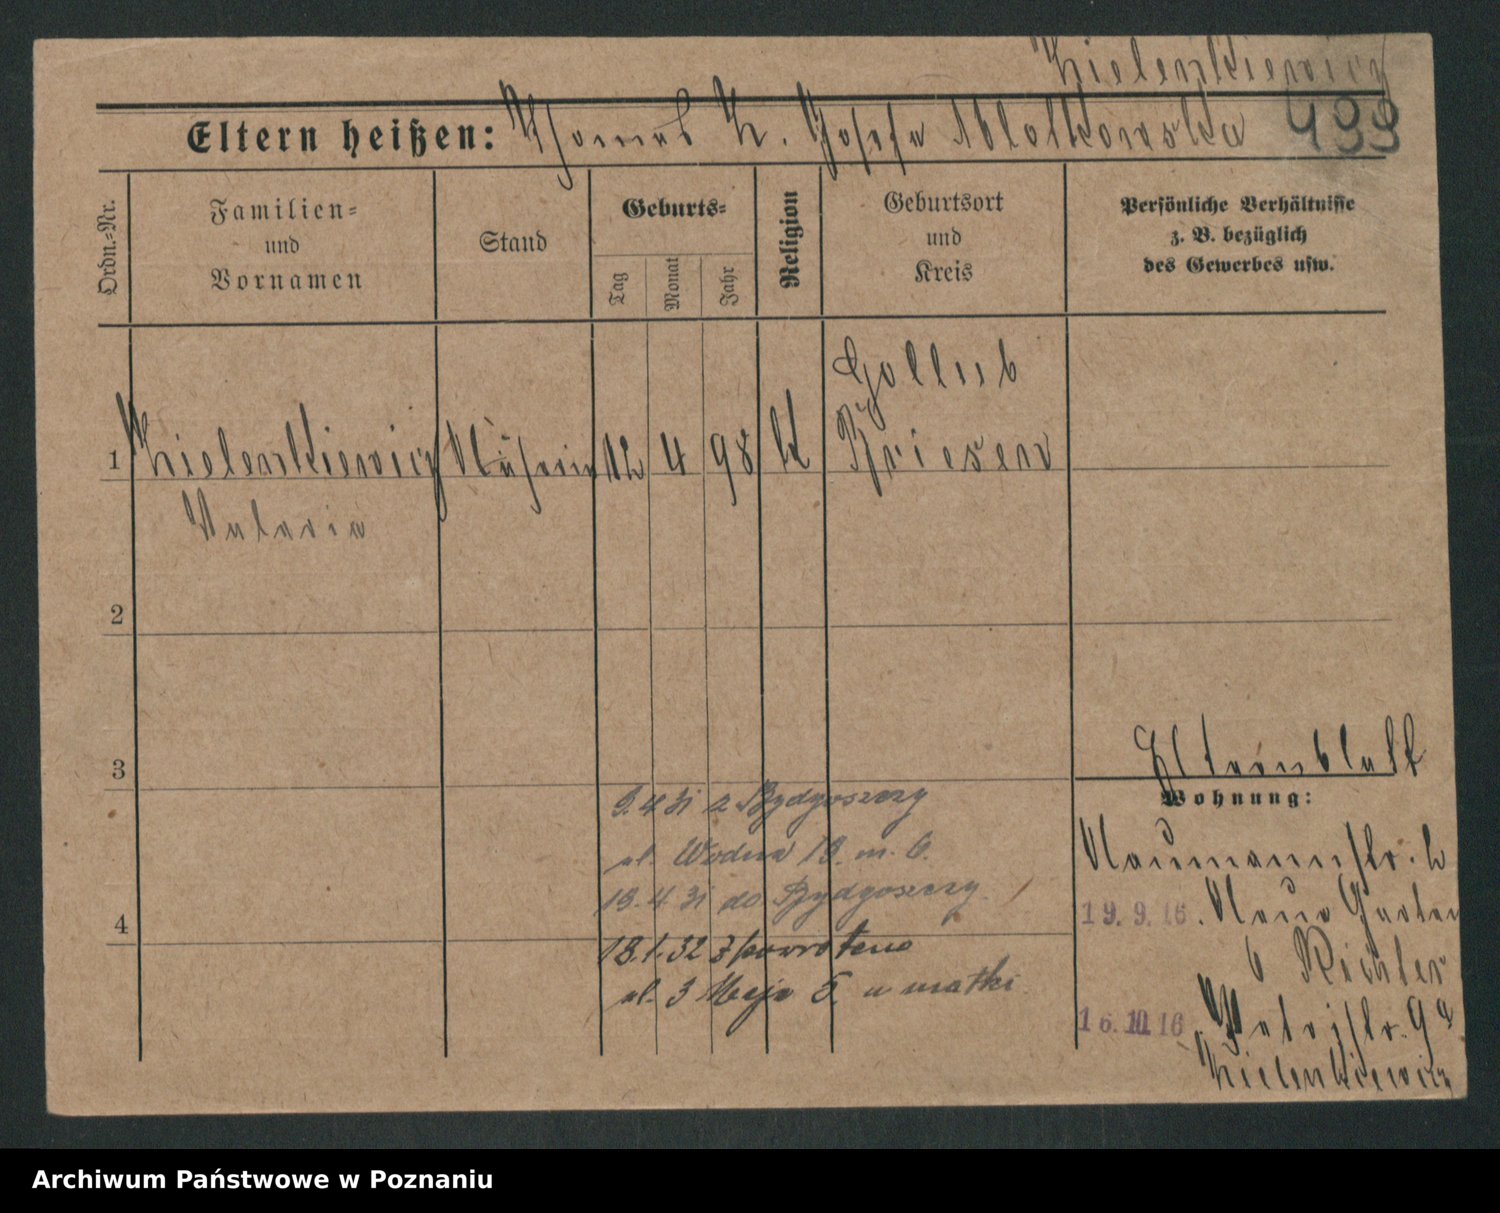 Zielenkiewicz
Eltern heißen: Thomas Z. Josefa Ablotkowska
499
Ordn.=Nr.
Familien=
und
Vornamen
Stand
Geburts=
Tag
Monat
Jahr
Religion
Geburtsort
und
Kreis
Persönliche Verhältnisse
z. B. bezüglich
des Gewerbes usw.
1
Zielenkiewicz
Valeria
Näherin
12
4
98
k
Gollub
Briesen
2
3
4
9.4.31 z Bydgoszczy
ul. Wodna 19. m. 6.
19.4.31 do Bydgoszczy.
18.1.32 z powrotem
ul. 3 Maja 5. u matki.
Elternblatt
Wohnung:
Naumannstr. 2
19.9.16. Neue Garten
6 Richter
16.10.16 Petristr. 9a
Zielenkiewicz
Archiwum Państwowe w Poznaniu